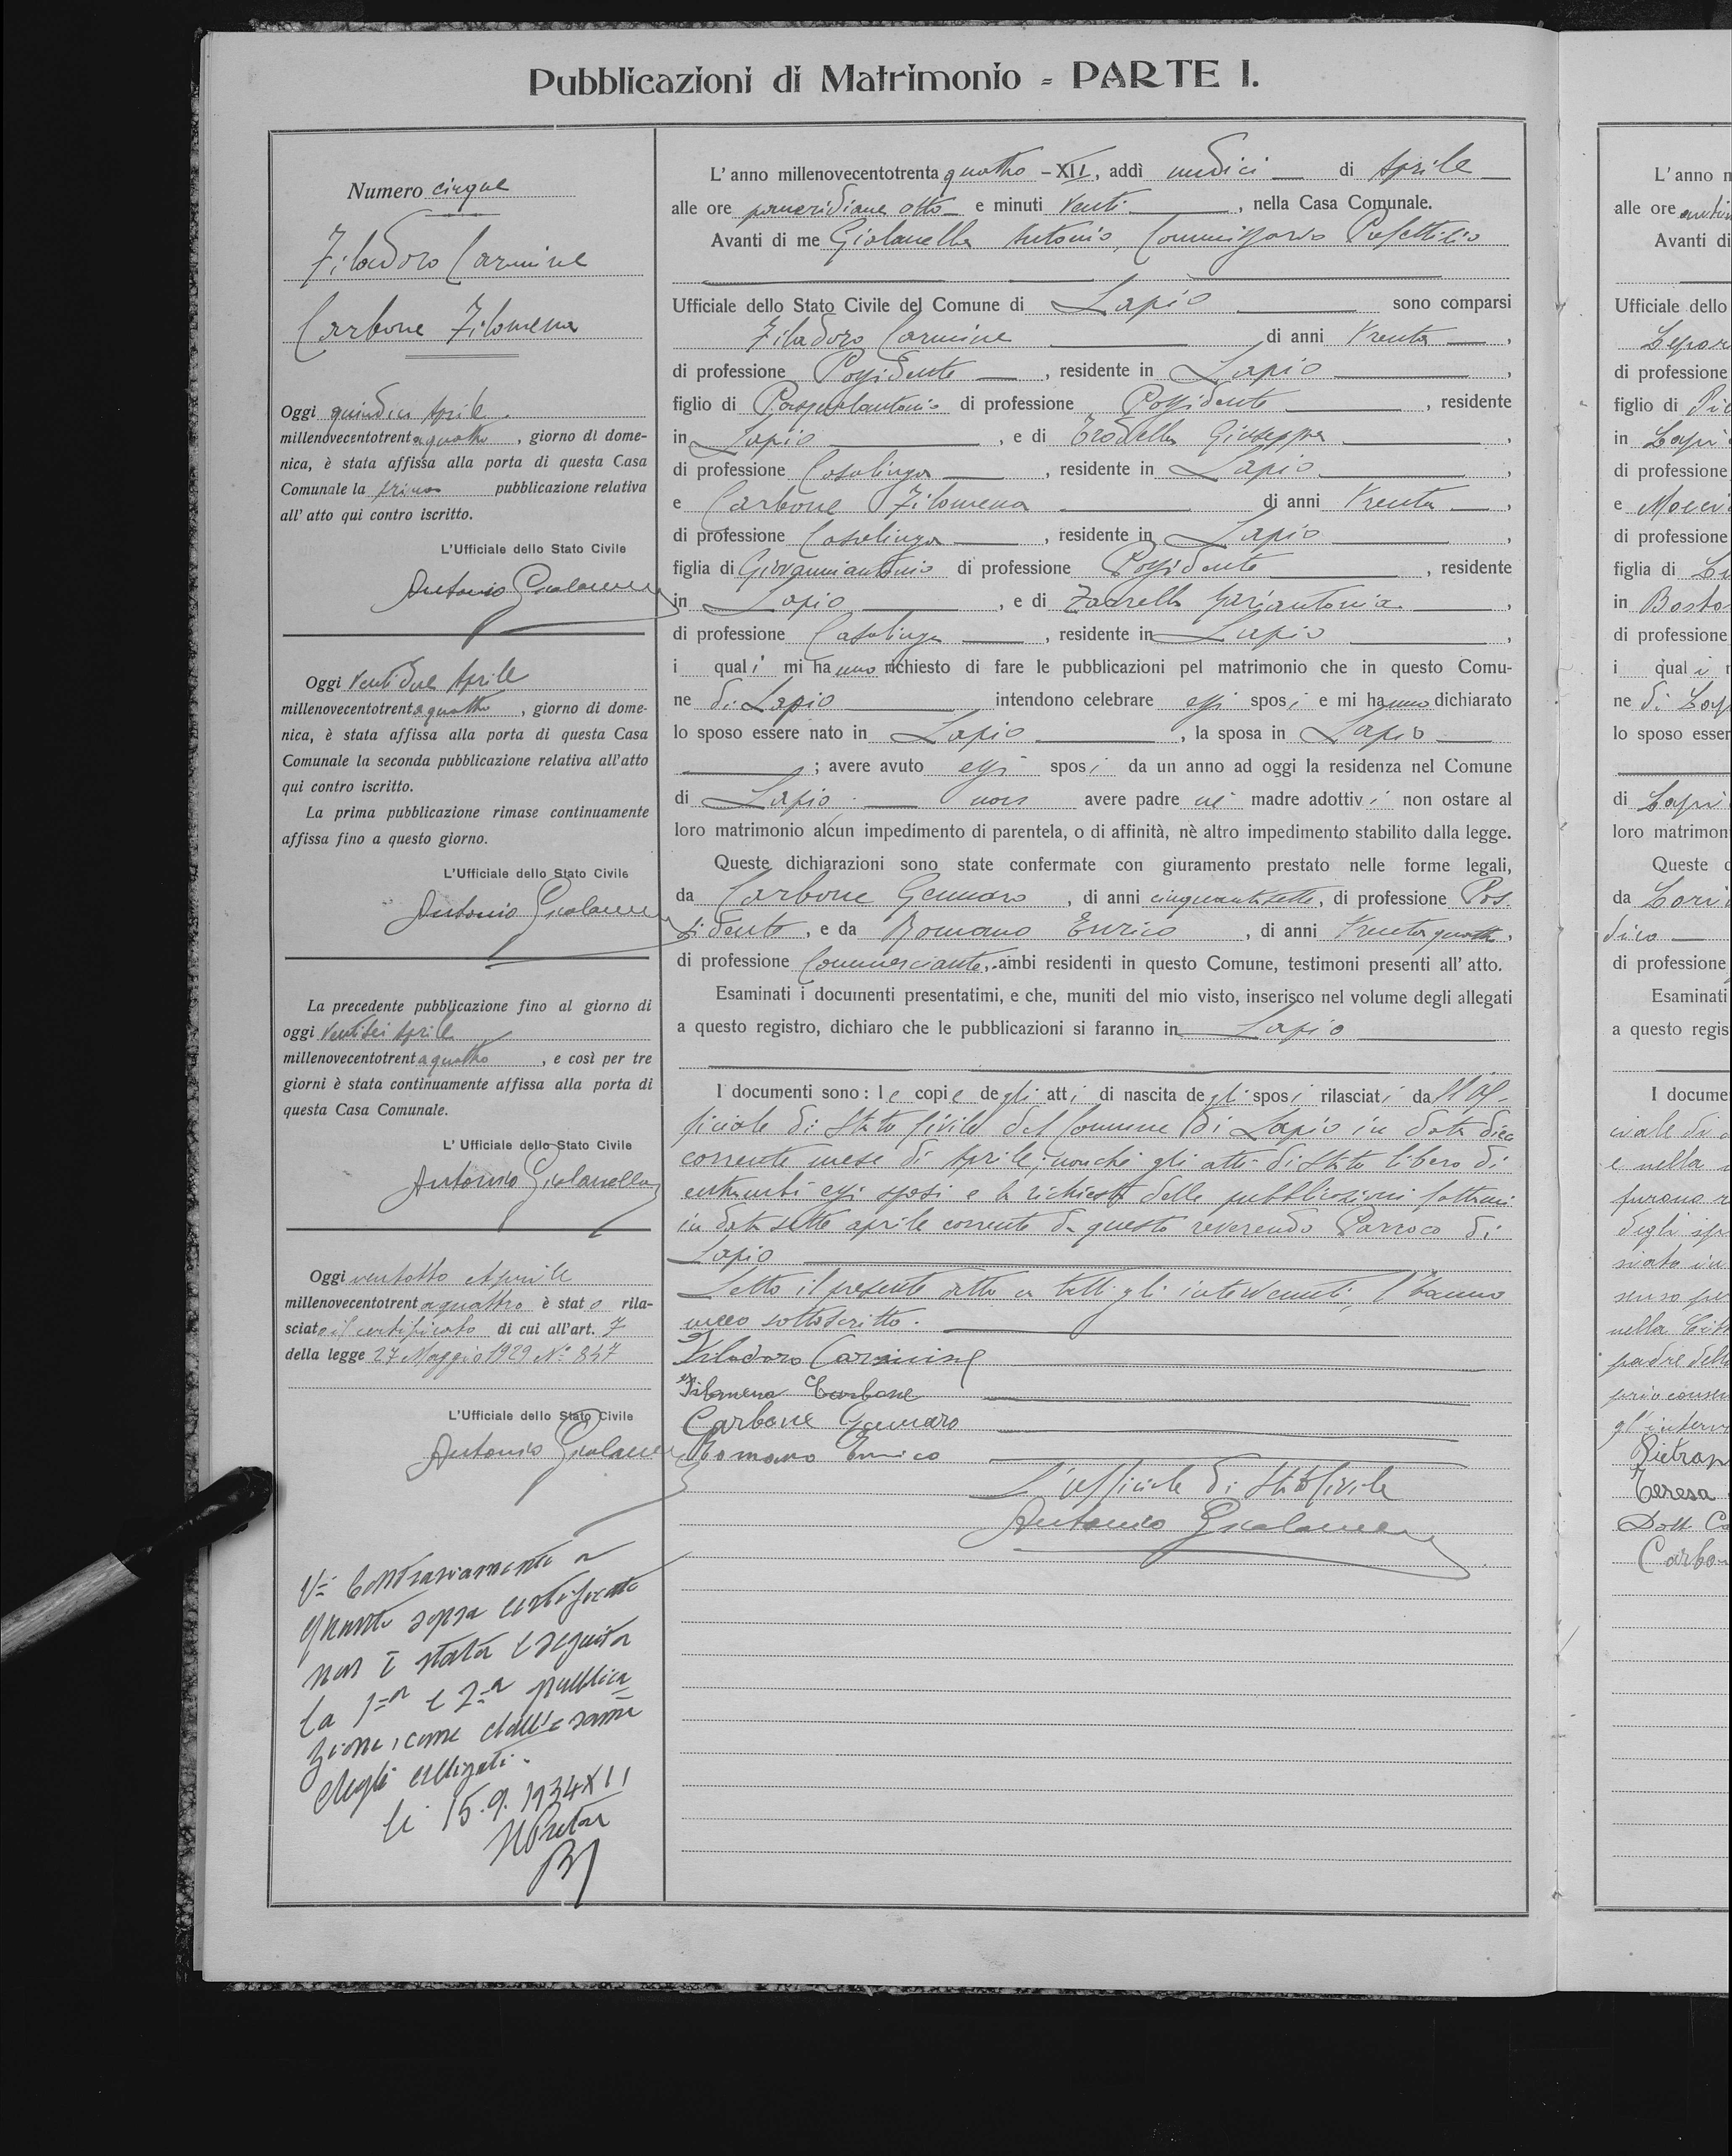 Pubblicazioni di Matrimonio = PARTE I.
Numero cinque
Filadoro Carmine
Carbone Filomena
Oggi quindici Aprile
millenovecentotrentaquattro, giorno di dome-
nica, è stata affissa alla porta di questa Casa
Comunale la prima pubblicazione relativa
all'atto qui contro iscritto.
L'Ufficiale dello Stato Civile
Antonio
Oggi Ventidue Aprile
millenovecentotrentaquattro, giorno di dome-
nica, è stata affissa alla porta di questa Casa
Comunale la seconda pubblicazione relativa all'atto
qui contro iscritto.
La prima pubblicazione rimase continuamente
affissa fino a questo giorno.
L'Ufficiale dello Stato Civile
Antonio
La precedente pubblicazione fino al giorno di
oggi Ventisei Aprile
millenovecentotrentaquattro, e così per tre
giorni è stata continuamente affissa alla porta di
questa Casa Comunale.
L'Ufficiale dello Stato Civile
Antonio
Oggi ventotto Aprile
millenovecentotrentaquattro è stato rila-
sciato il certificato di cui all'art. 7
della legge 27 Maggio 1929 N° 847
L'Ufficiale dello Stato Civile
Antonio
Contrariamente a
quanto sopra certificato
non è stata eseguita
la 1ª e 2ª pubblica
zione, come dall'esame
degli allegati.
li 15.9.1934 XII
Il Pretore
L'anno millenovecentotrentaquattro - XII, addì undici di Aprile
alle ore pomeridiane otto e minuti Venti, nella Casa Comunale.
Avanti di me Antonio, Commissario Prefettizio
Ufficiale dello Stato Civile del Comune di Lapio sono comparsi
Filadoro Carmine di anni Trenta,
di professione Possidente, residente in Lapio,
figlio di Pasqualantonio di professione Possidente, residente
in Lapio, e di Trodella Giuseppa,
di professione Casalinga, residente in Lapio,
e Carbone Filomena di anni Trenta,
di professione Casalinga, residente in Lapio,
figlia di Giovanniantonio di professione Possidente, residente
in Lapio, e di Zaarella Mariantonia,
di professione Casalinga, residente in Lapio,
i quali mi hanno richiesto di fare le pubblicazioni pel matrimonio che in questo Comu-
ne di Lapio intendono celebrare essi sposi e mi hanno dichiarato
lo sposo essere nato in Lapio, la sposa in Lapio
; avere avuto essi sposi da un anno ad oggi la residenza nel Comune
di Lapio; non avere padre nè madre adottivi non ostare al
loro matrimonio alcun impedimento di parentela, o di affinità, nè altro impedimento stabilito dalla legge.
Queste dichiarazioni sono state confermate con giuramento prestato nelle forme legali,
da Carbone Gennaro, di anni cinquantasette, di professione Pos
sidente, e da Romano Enrico, di anni Trentaquattro,
di professione Commerciante, ambi residenti in questo Comune, testimoni presenti all'atto.
Esaminati i documenti presentatimi, e che, muniti del mio visto, inserisco nel volume degli allegati
a questo registro, dichiaro che le pubblicazioni si faranno in Lapio
I documenti sono: le copie degli atti di nascita degli sposi rilasciati dall'Uf-
ficiale di Stato Civile del Comune di Lapio in data dieci
corrente mese di Aprile; nonchè gli atti di stato libero di
entrambi essi sposi e la richiesta delle pubblicazioni fattami
in data sette aprile corrente da questo reverendo Parroco di
Lapio
Letto il presente atto a tutti gli intervenuti, l'hanno
meco sottoscritto.
Filadoro Carmine
Filomena Carbone
Carbone Gennaro
Romano Enrico
L'ufficiale di Stato Civile
Antonio
L'anno
alle ore
Avanti di
Ufficiale dello
di professione
figlio di
in
di professione
e
di professione
figlia di
in
di professione
i quali
ne di
lo sposo esser
di
loro matrimon
Queste
da
di professione
Esaminati
a questo regis
I docume
Teresa
Dott. Ca
Carbo